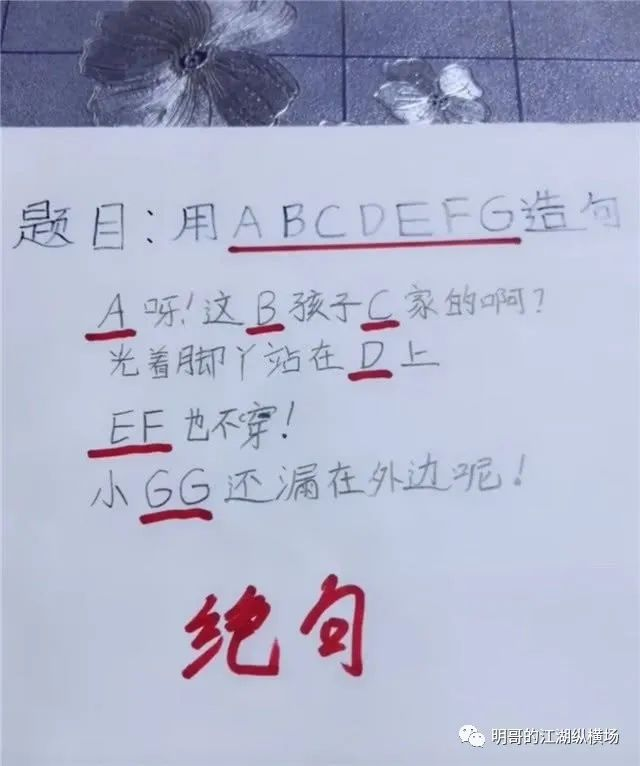 题目:用ABCDEFG造句
A呀!这B孩子C家的啊?
光着脚丫站在D上
EF也不穿!
小GG还漏在外边呢!
绝句
明哥的江湖纵横场